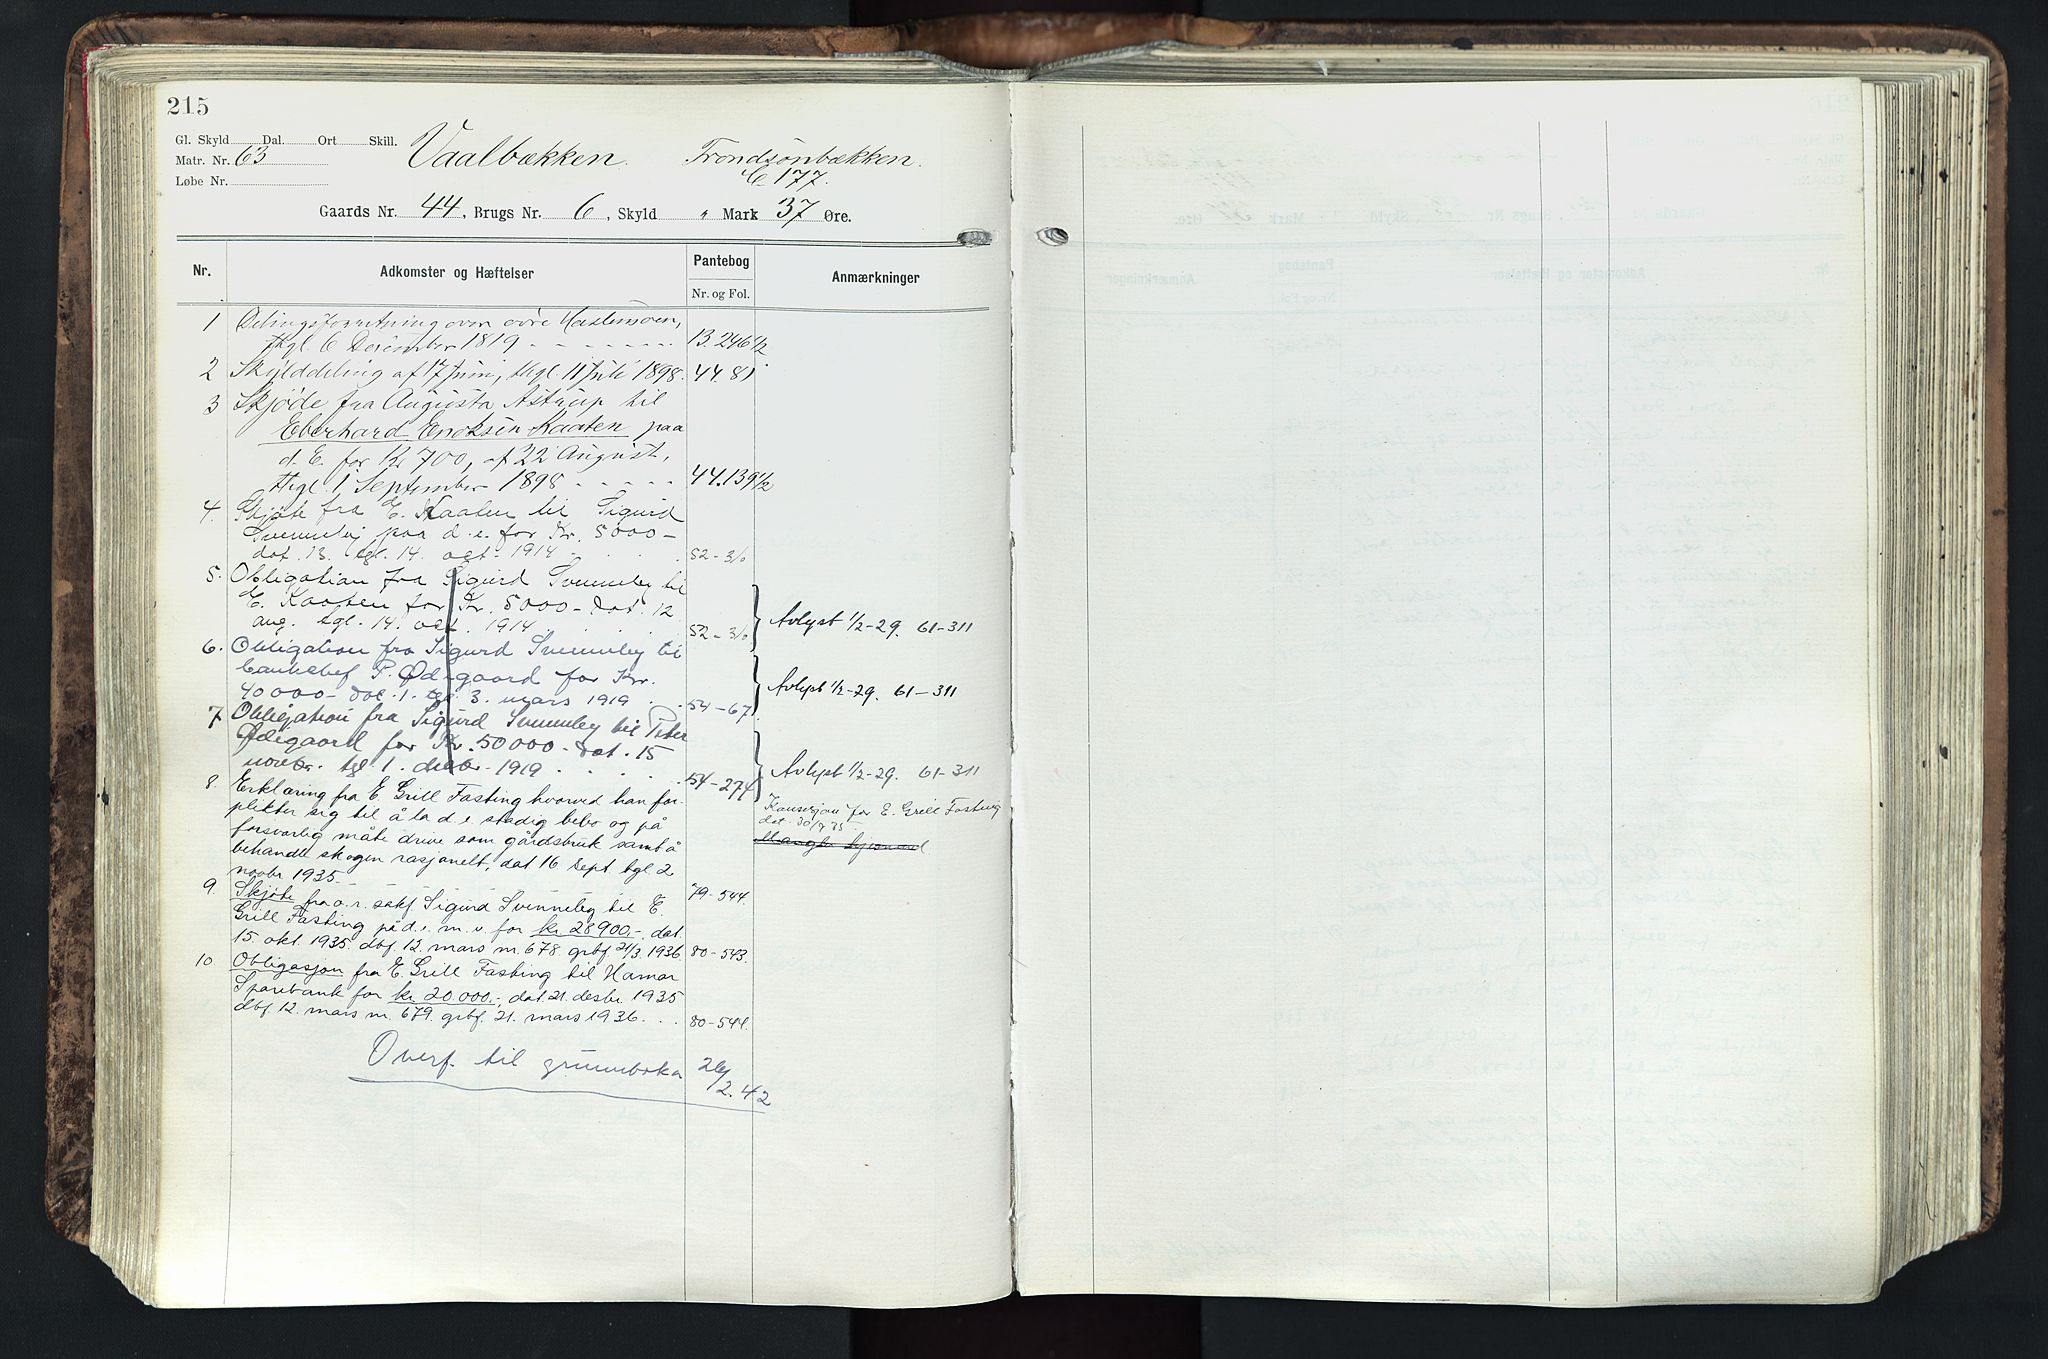 215
Gl. Skyld Dal. Ort Skill.
Matr. Nr. 63 Vaalbækken. Trondsönbækken.
Løbe Nr. C 177.
Gaards Nr. 44, Brugs Nr. 6, Skyld " Mark 37 Øre.
Nr. Adkomster og Hæftelser Pantebog Anmærkninger
Nr. og Fol.
1 Delingsforretning over övre
thgl. 6 December 1819 13.246 1/2
2 Skylddeling af 17 Juni, thgl. 11 Juli 1898. 44.81
3 Skjøde fra Augusta Astrup til
Eberhard Enoksen Kaaten paa
d. E. for Kr 700, af 22 August,
thgl. 1 September 1898 44.139 1/2
4. Skjøte fra E. Kaaten til Sigurd
Svenneby paa d. e. for Kr. 5000 –
dat. 13. tgl. 14. okt. 1914 52-310
5. Obligation fra Sigurd Svenneby til
E. Kaaten for Kr. 5000 – dat. 12
aug. tgl. 14. okt. 1914 52-310 Avlyst 1/2-29. 61-311
6. Obligation fra Sigurd Svenneby til
banksjef P. Ødegaard for Kr.
40000 – dat. 1. tgl. 3. mars 1919 54-67 Avlyst 1/2-29. 61-311
7 Obligation fra Sigurd Svenneby til Peter
Ødegaard for Kr. 50000 – dat. 15
novbr. tgl. 1. desbr. 1919 54-274 Avlyst 1/2-29. 61-311
8. Erklæring fra E Grill Fasting hvorved han for-
plikter sig til å la d. e. stadig bebo og på
forsvarlig måte drive som gårdsbruk samt å
behandle skogen rasjonelt, dat 16 sept tgl 2
novbr 1935 79-544
Konsesjon for E. Grill Fasting
dat. 30/7 35
9. Skjøte fra o.r. sakf. Sigurd Svenneby til E.
Grill Fasting på d. e. m. v. for kr 28900,-, dat.
15. okt. 1935 dbf. 12. mars nr. 678 grbf 21/3. 1936 80-543.
10 Obligasjon fra E. Grill Fasting til Hamar
Sparebank for kr 20.000,-, dat. 21. desbr. 1935
dbf. 12. mars nr. 679. grbf. 21. mars 1936. 80-544.
Overf. til grunnboka 26/2.42